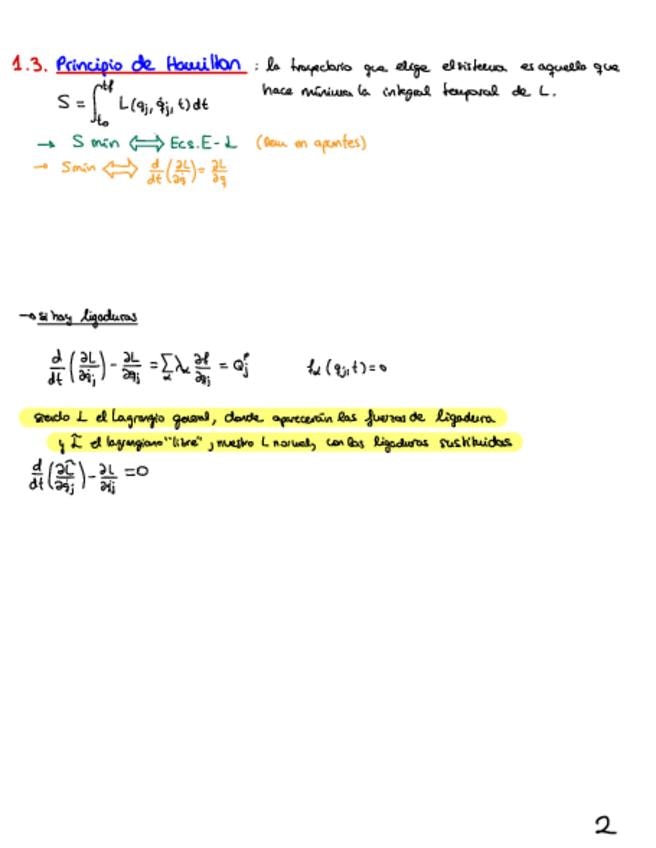 1.3. Principio de Hamilton : la trayectoria que elige el sistema es aquella que
S = ∫_{t₀}^{tf} L(qj, q̇j, t) dt hace mínima la integral temporal de L.
→ S min ⟺ Ecs. E-L (Dem en apuntes)
→ S min ⟺ d/dt (∂L/∂q̇) = ∂L/∂q
→ si hay ligaduras
d/dt (∂L/∂q̇j) - ∂L/∂qj = Σ_α λα ∂f/∂qj = Qj' fα (qj, t) = 0
siendo L el Lagrangio general, donde aparecerán las fuerzas de ligadura
y L̃ el lagrangiano "libre", nuestro L normal, con las ligaduras sustituidas
d/dt (∂L̃/∂q̇j) - ∂L/∂qj = 0
2